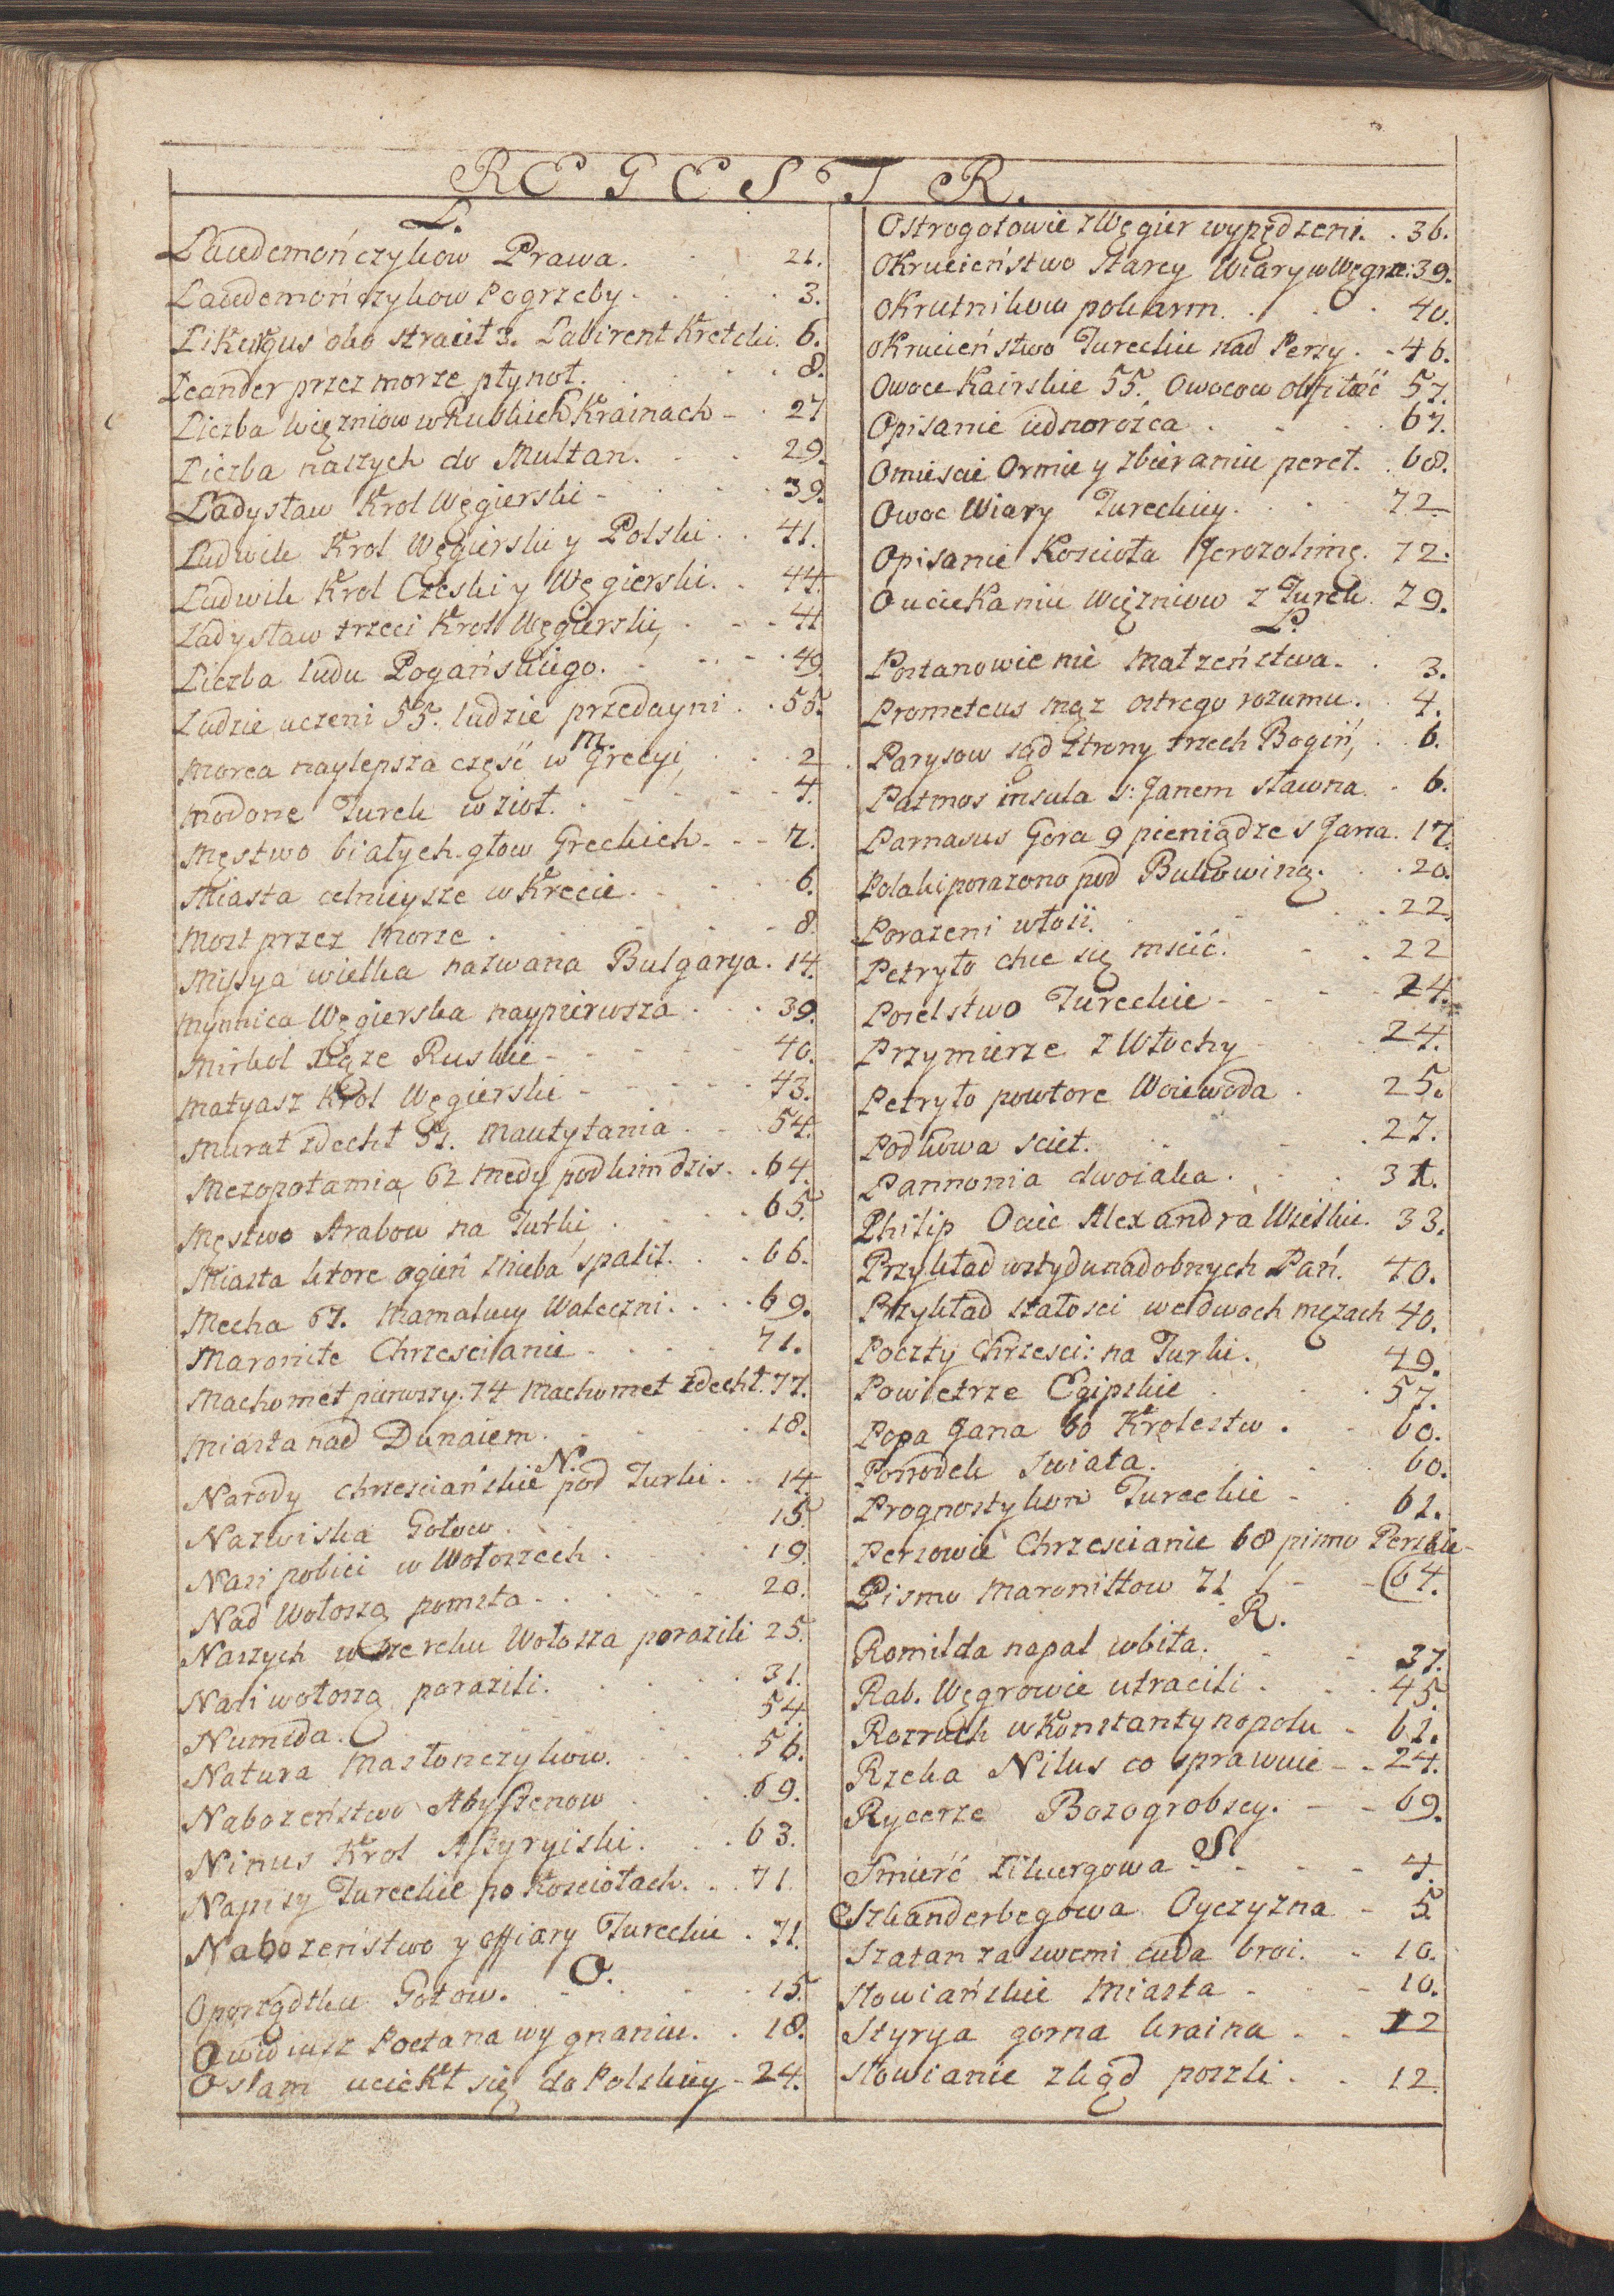 REGESTR.
L.
Lacedemończykow Prawa. 21.
Lacedemończykow Pogrzeby. 3.
Likurgus oko stracił 3. Labirent Kretcki. 6.
Leander przez morze płynoł. 8.
Liczba więzniow w Ruskich Krainach 27
Liczba naszych do Multan. 29.
Ladysław Krol Węgierski 39.
Ludwik Krol Węgierski y Polski. 41.
Ludwik Krol Czeski y Węgierski. 44.
Ladysław trzeci Krol Węgierski, 41
Liczba ludu Pogańskiego. 49.
Ludzie uczeni 55. ludzie przedayni 55.
M.
Morea naylepsza część w Grecyi, 2
Modone Turek wzioł. 4.
Męstwo białych-głow Greckich 7.
Miasta celnieysze w Krecie 6.
Most przez Morze. 8.
Missya wielka nazwana Bulgarya. 14.
Mynnica Węgierska naypierwsza 39.
Mirkol xiąze Ruskie 40.
Matyasz Krol Węgierski 43.
Murat zdechł 51. Mautytania 54.
Mezopotamia, 62 Medy pod kim dzis. 64.
Męstwo Arabow na Turki, 65.
Miasta ktore ogień Nieba spalił. 66.
Mecha 67. Mamalucy Waleczni. 69.
Maronite Chrzescianie 71.
Machomet pierwszy. 74 Machomet zdechł. 77.
Miasta nad Dunaiem. 18.
N.
Narody chrzesciańskie pod Turki. 14.
Nazwiska Gotow. 15.
Nasi pobici w Wołoszech. 19.
Nad Wołoszą pomsta. 20.
Naszych w Szereku Wołosza poraziłi 25.
Nasi wołoszą poraziłi. 31.
Numida. 54.
Natura Masłonczykow. 56.
Nabozeństwo Abyssenow 69.
Ninus Krol Assyryiski. 63.
Napisy Tureckie po Kosciołach. 71.
Nabozeństwo y offiary Tureckie. 71.
O.
O porządku Gotow. 15.
Owidiusz Poeta na wygnaniu. 18.
Osłam uciekł się do Polskiey 24.
Ostrogotowie z Węgier wypędzeni. 36.
Okrucieństwo starey Wiary w Węgrze. 39.
Okrutnikow pokarm. 40.
Okrucieństwo Tureckie nad Persy. 46.
Owoce Kairskie 55. Owocow obfitość 57.
Opisanie iednorożca 67.
O miescie Ormie y zbieraniu pereł. 68.
Owoc Wiary Tureckiey. 72
Opisanie Kosciola Jerozolimę. 72.
O uciekaniu więzniow z Turek. 79.
P.
Postanowienie Małzeństwa. 3.
Prometeus mąz ostrego rozumu. 4.
Parysow sąd strony trzech Bogiń, 6.
Patmos insula S: Janem sławna. 6.
Parnasus Gora 9 pieniądze S Jana. 17.
Polaki porazono pod Bukowiną. 20.
Porazeni włosi. 22.
Petryło chce się mscić. 22
Poselstwo Tureckie 24.
Przymierze z Włochy 24.
Petryło powtore Woiewoda 25.
Podkowa sciet. 27.
Pannonia dwoiaka. 31.
Philip Ociec Alexandra Wielkie. 33.
Przykład wstydu nadobnych Pań. 40.
Przykład stałosci we dwoch męzach 40.
Poczty Chrzesci: na Turki. 49.
Powietrze Egipskie 57.
Popa Jana 60 Krolestw. 60.
Posrodek swiata. 60.
Prognostykon Tureckie 61.
Persowie Chrzescianie 68 pismo Perskie
Pismo Maronittow 71 (64.
R.
Romilda na pal wbita. 37.
Rab. Węgrowie utracili. 45.
Rozruch w Konstantynopolu 61.
Rzeka Nilus co sprawuie 24.
Rycerze Bozogrobscy. 69.
S.
Smierć Likurgowa 4.
Szkanderbegowa Oyczyzna 5
Szatan za swemi cuda broi. 10.
Słowiańskie Miasta 10.
Styrya gorna kraina 12
Słowianie zkąd poszli. 12.